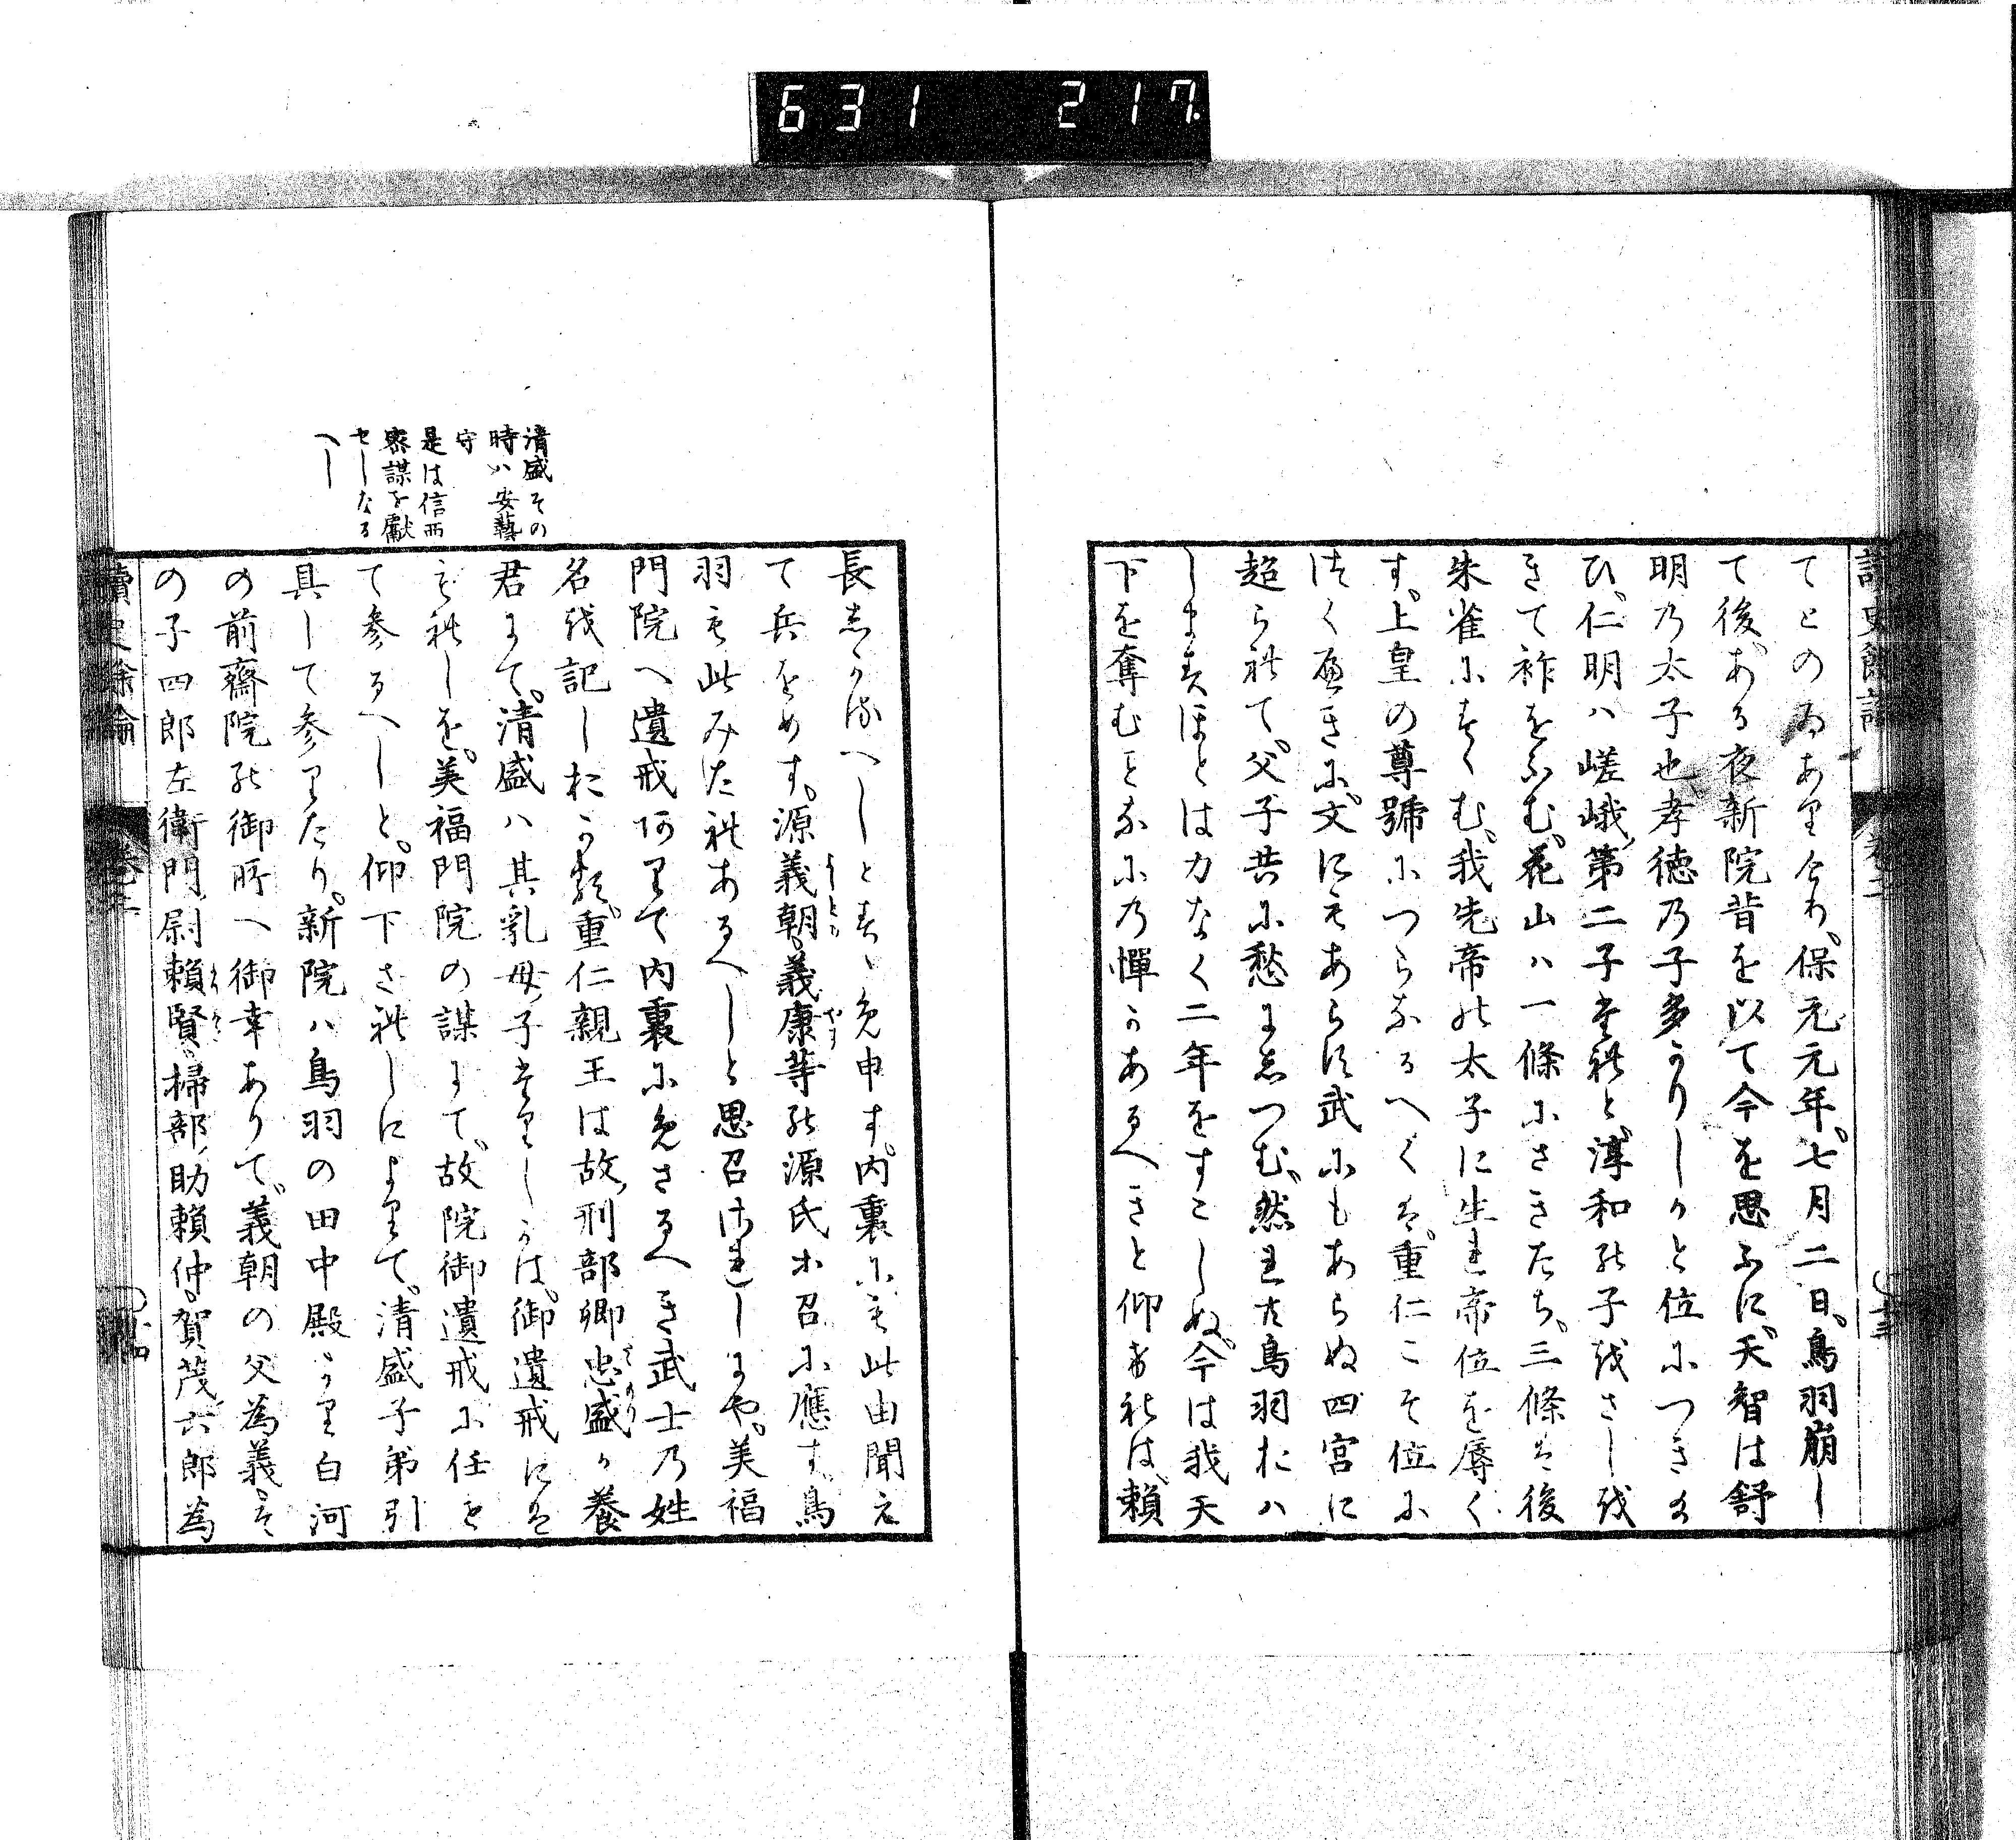 631 217.
讀史餘論 卷二 十三
てとのゐあり今わ保元元年七月二日鳥羽崩し
て後ある夜新院昔を以て今を思ふに天智は舒
明乃太子也孝徳乃子多かりしかと位につき給
ひ仁明ハ嵯峨第二子それと淳和の子をさしを
きて祚をふむ花山ハ一條にさきたち三條は後
朱雀にすゝむ我先帝の太子に生れ帝位を辱く
す上皇の尊號につらなるへくは重仁こそ位に
つくへきに文にもあらす武にもあらぬ四宮に
超られて父子共に愁にしつむ然れ共鳥羽おハ
しますほとは力なく二年をすこしぬ今は我天
下を奪むことなにの憚かあるへきと仰ければ頼
長しかるへしとすゝめ申す内裏にも此由聞え
て兵をめす源義朝義康等の源氏ホ召に應す鳥
羽も此みたれあるへしと思召けれしにや美福
門院へ遺戒ありて内裏にめさるへき武士乃姓
名を記しおかる重仁親王は故刑部卿忠盛か養
君にて清盛ハ其乳母子なりしかは御遺戒には
もれしを美福門院の謀にて故院御遺戒に任せ
て参るへしと仰下されしによりて清盛子弟引
具して参りたり新院ハ鳥羽の田中殿より白河
の前齋院の御所へ御幸ありて義朝の父為義そ
の子四郎左衛門尉頼賢掃部助頼仲賀茂六郎為
清盛その
時ハ安藝
守
是は信西
密謀を獻
せしなる
へし
讀史餘論 卷二 十四